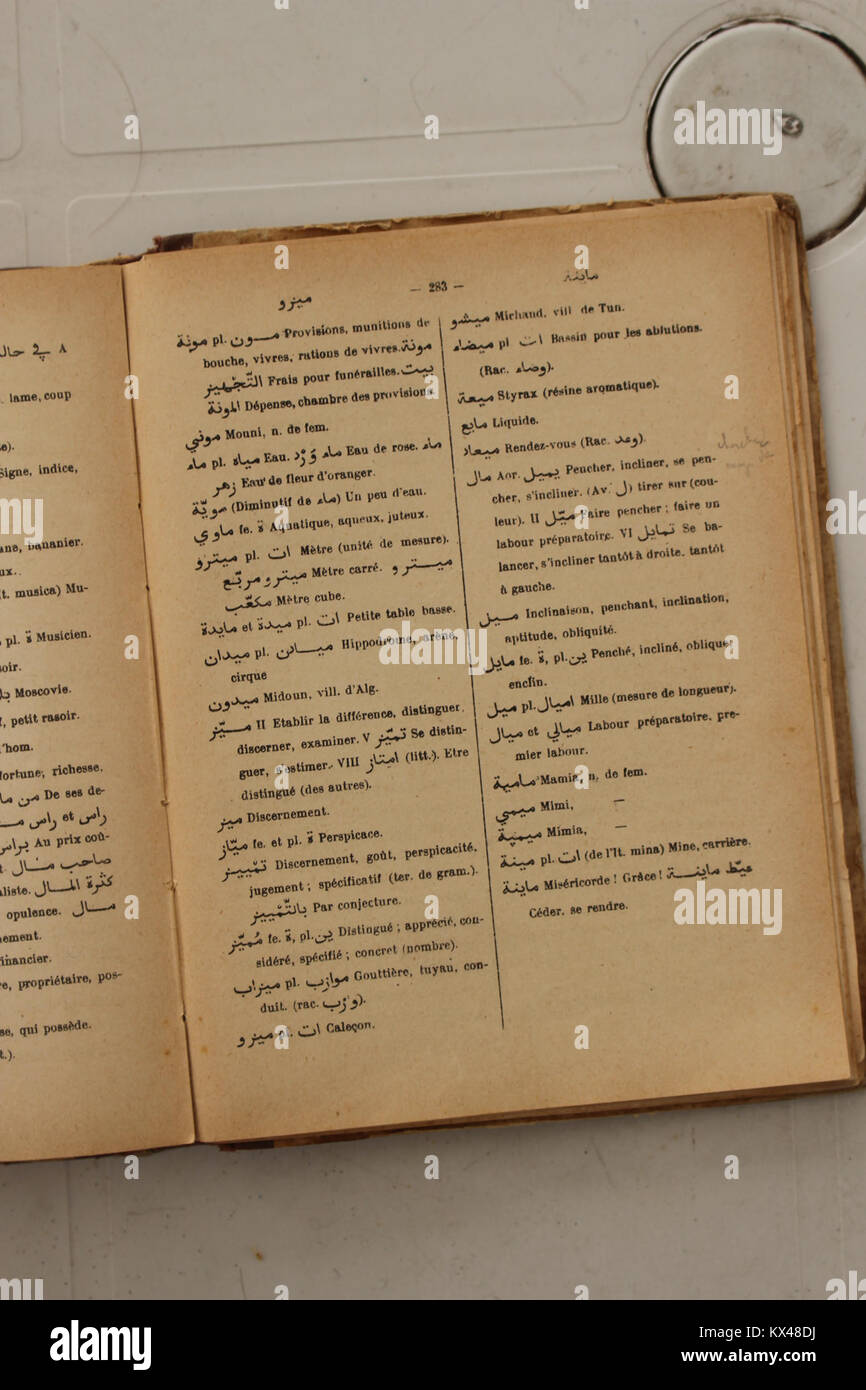 A في حالة
. lame, coup
Signe, indice,
bananier.
t. musica) Mu-
pl. ة Musicien.
Moscovie.
petit rasoir.
fortune, richesse.
من ما De ses de-
راس et راس
Au prix coû-
صاحب مـال
كثرة المـال
opulence. مـال
financier.
propriétaire, pos-
se, qui possède.
ميزو — 283 — ماينة
مونة pl. مـــون Provisions, munitions de
bouche, vivres, rations de vivres. مونة
التّجهيز Frais pour funérailles. بيت
المونة Dépense, chambre des provisions
موني Mouni, n. de fem.
ماء pl. مياه Eau. ماء وَرْد Eau de rose. ماء
زهر Eau de fleur d'oranger.
مويّة (Diminutif de ماء) Un peu d'eau.
ماوي fe. ة Aquatique, aqueux, juteux.
ميترو pl. ات Mètre (unité de mesure).
ميترو مربّع Mètre carré. ميـــترو
مكعّب Mètre cube.
مايدة et ميدة pl. ات Petite table basse.
ميدان pl. ميـــادن Hippodrome, arène,
cirque
ميدون Midoun, vill. d'Alg.
ميّـــز II Etablir la différence, distinguer,
discerner, examiner. V تميّز Se distin-
guer, s'estimer. VIII امتاز (litt.). Etre
distingué (des autres).
ميز Discernement.
ميّاز fe. et pl. ة Perspicace.
تمييـــز Discernement, goût, perspicacité,
jugement ; spécificatif (ter. de gram.).
بالتّمييز Par conjecture.
مُميّز fe. ة, pl. ين Distingué ; apprécié, con-
sidéré, spécifié ; concret (nombre).
ميزاب pl. موازب Gouttière, tuyau, con-
duit. (rac. وزب).
ميزو pl. ات Caleçon.
ميشو Michaud, vill de Tun.
ميضاء pl ات Bassin pour les ablutions.
(Rac. وضاء).
ميعة Styrax (résine aromatique).
مايع Liquide.
ميعاد Rendez-vous (Rac. وعد).
مال Aor. يميل Pencher, incliner, se pen-
cher, s'incliner. (Av. ل) tirer sur (cou-
leur). II ميّل Faire pencher ; faire un
labour préparatoire. VI تمايل Se ba-
lancer, s'incliner tantôt à droite, tantôt
à gauche.
ميـــل Inclinaison, penchant, inclination,
aptitude, obliquité.
مايل fe. ة, pl. ين Penché, incliné, oblique,
enclin.
ميل pl. اميال Mille (mesure de longueur).
ميال et ميالي Labour préparatoire, pre-
mier labour.
مامية Mamia, n. de fem.
ميمي Mimi, —
ميمية Mimia, —
مينة pl. ات (de l'It. mina) Mine, carrière.
ماينة Miséricorde ! Grâce ! عيّط ماينـــة
Céder, se rendre.
alamy
Image ID: KX48DJ
www.alamy.com